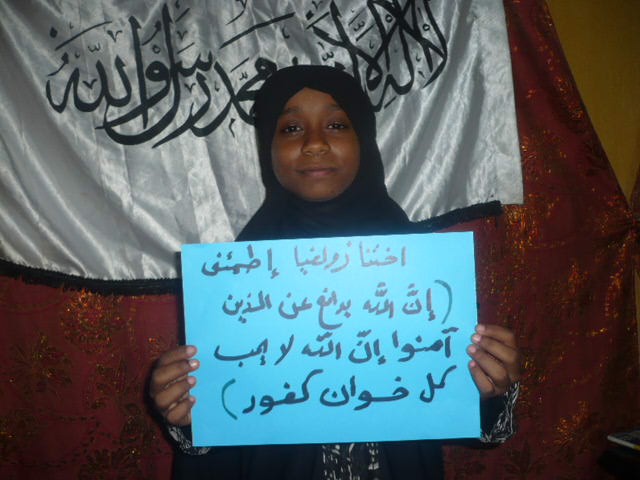 لا إله إلا الله محمد رسول الله
اختنا زولفيا إطمئنى
(إنَّ اللَّه يدافع عن الذين
آمنوا إنّ اللّه لا يحب
كل خوان كفور)